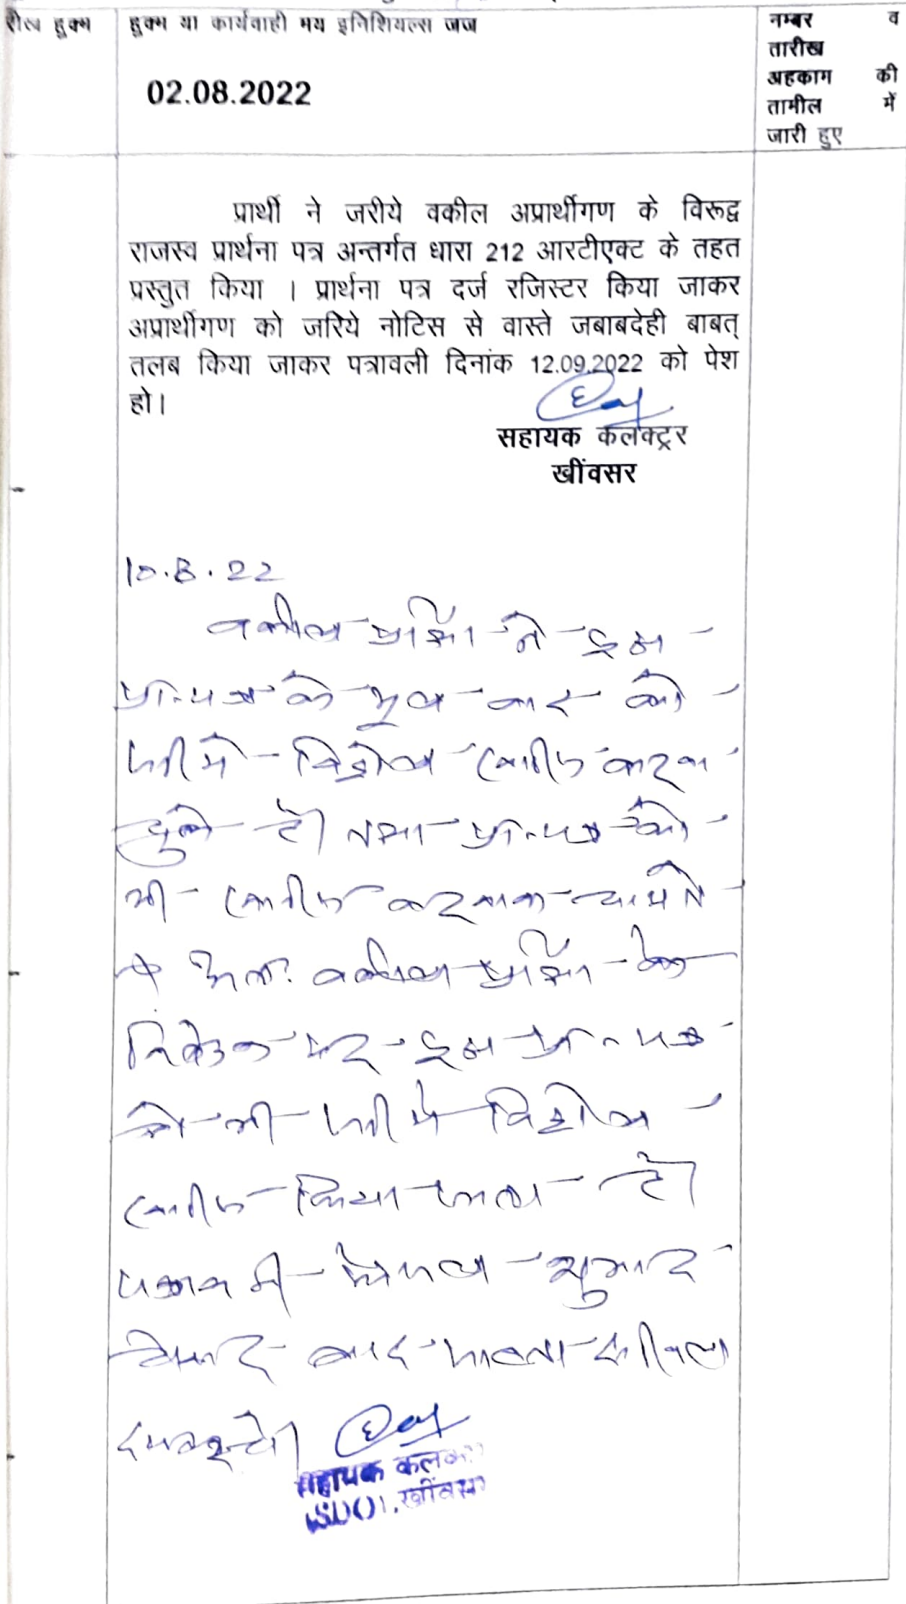 रीख हुक्म
हुक्म या कार्यवाही मय इनिशियल्स जज
नम्बर व
तारीख
अहकाम की
तामील में
जारी हुए
02.08.2022
प्रार्थी ने जरीये वकील अप्रार्थीगण के विरूद्व
राजस्व प्रार्थना पत्र अन्तर्गत धारा 212 आरटीएक्ट के तहत
प्रस्तुत किया । प्रार्थना पत्र दर्ज रजिस्टर किया जाकर
अप्रार्थीगण को जरिये नोटिस से वास्ते जबाबदेही बाबत्
तलब किया जाकर पत्रावली दिनांक 12.09.2022 को पेश
हो।
सहायक कलक्ट्रर
खींवसर
10.8.22
वकील प्रार्थी ने इस
प्रा-पत्र के मूल वाद को
विड्रोल खारीज करवा
चुके है। तथा प्रा-पत्र को
भी खारीज करवाना चाहते
है अतः वकील प्रार्थी के
निवेदन पर इस प्रा-पत्र
को भी विड्रोल
खारीज किया जाता है।
पत्रावली फैसल शुमार
होकर बाद
सहायक कलक
(SDO), खींवसर